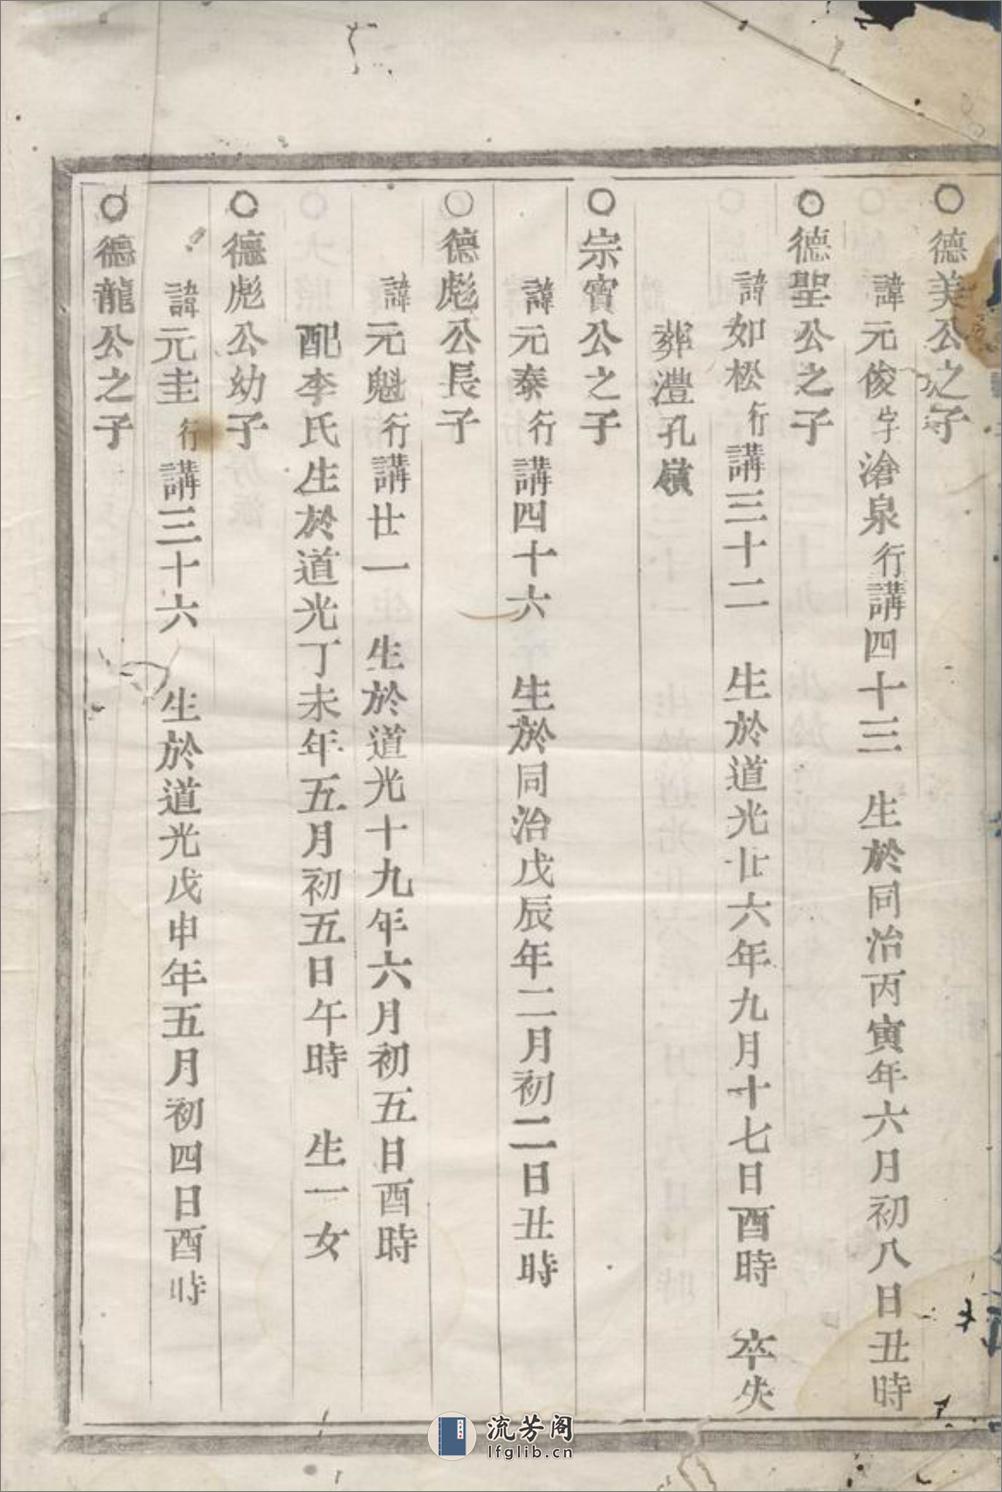 ○德美公之子
諱元俊字滄泉行講四十三　生於同治丙寅年六月初八日丑時
○德聖公之子
諱如松行講三十二　生於道光廿六年九月十七日酉時　卒失
葬澧孔嶺
○宗寶公之子
諱元泰行講四十六　生於同治戊辰年二月初二日丑時
○德彪公長子
諱元魁行講廿一　生於道光十九年六月初五日酉時
配李氏生於道光丁未年五月初五日午時　生一女
○德彪公幼子
諱元圭行講三十六　生於道光戊申年五月初四日酉時
○德龍公之子
流芳阁
lfglib.cn